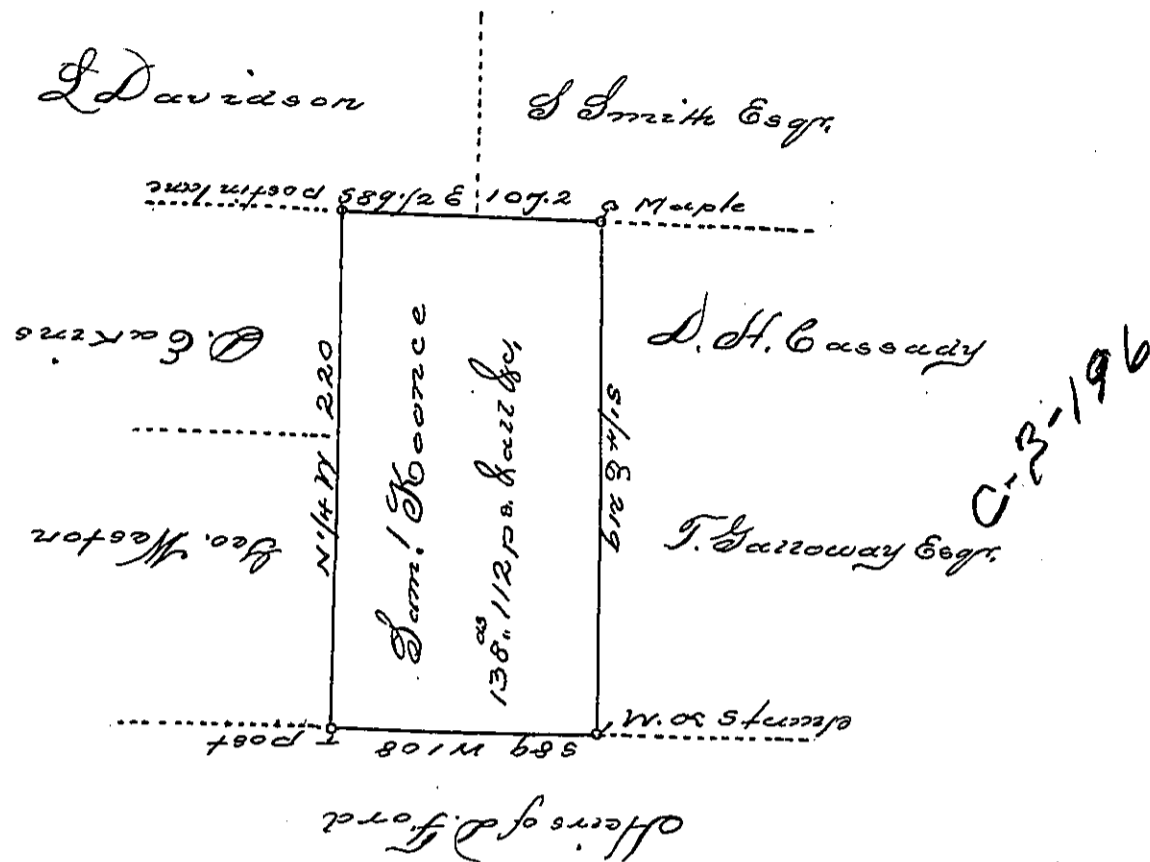 L Davidson
S Smith Esqr.
post in lane
S89 1/2 E 107.2
Maple
D. Eakins
N 1/4 W 220
Saml Koonce
138as 112 ps. & all &c,
S 1/4 E 219
D. H. Cassady
C-3-196
Geo. Weston
T. Galloway Esqr.
post
S89 W 108
Heirs of D. Ford